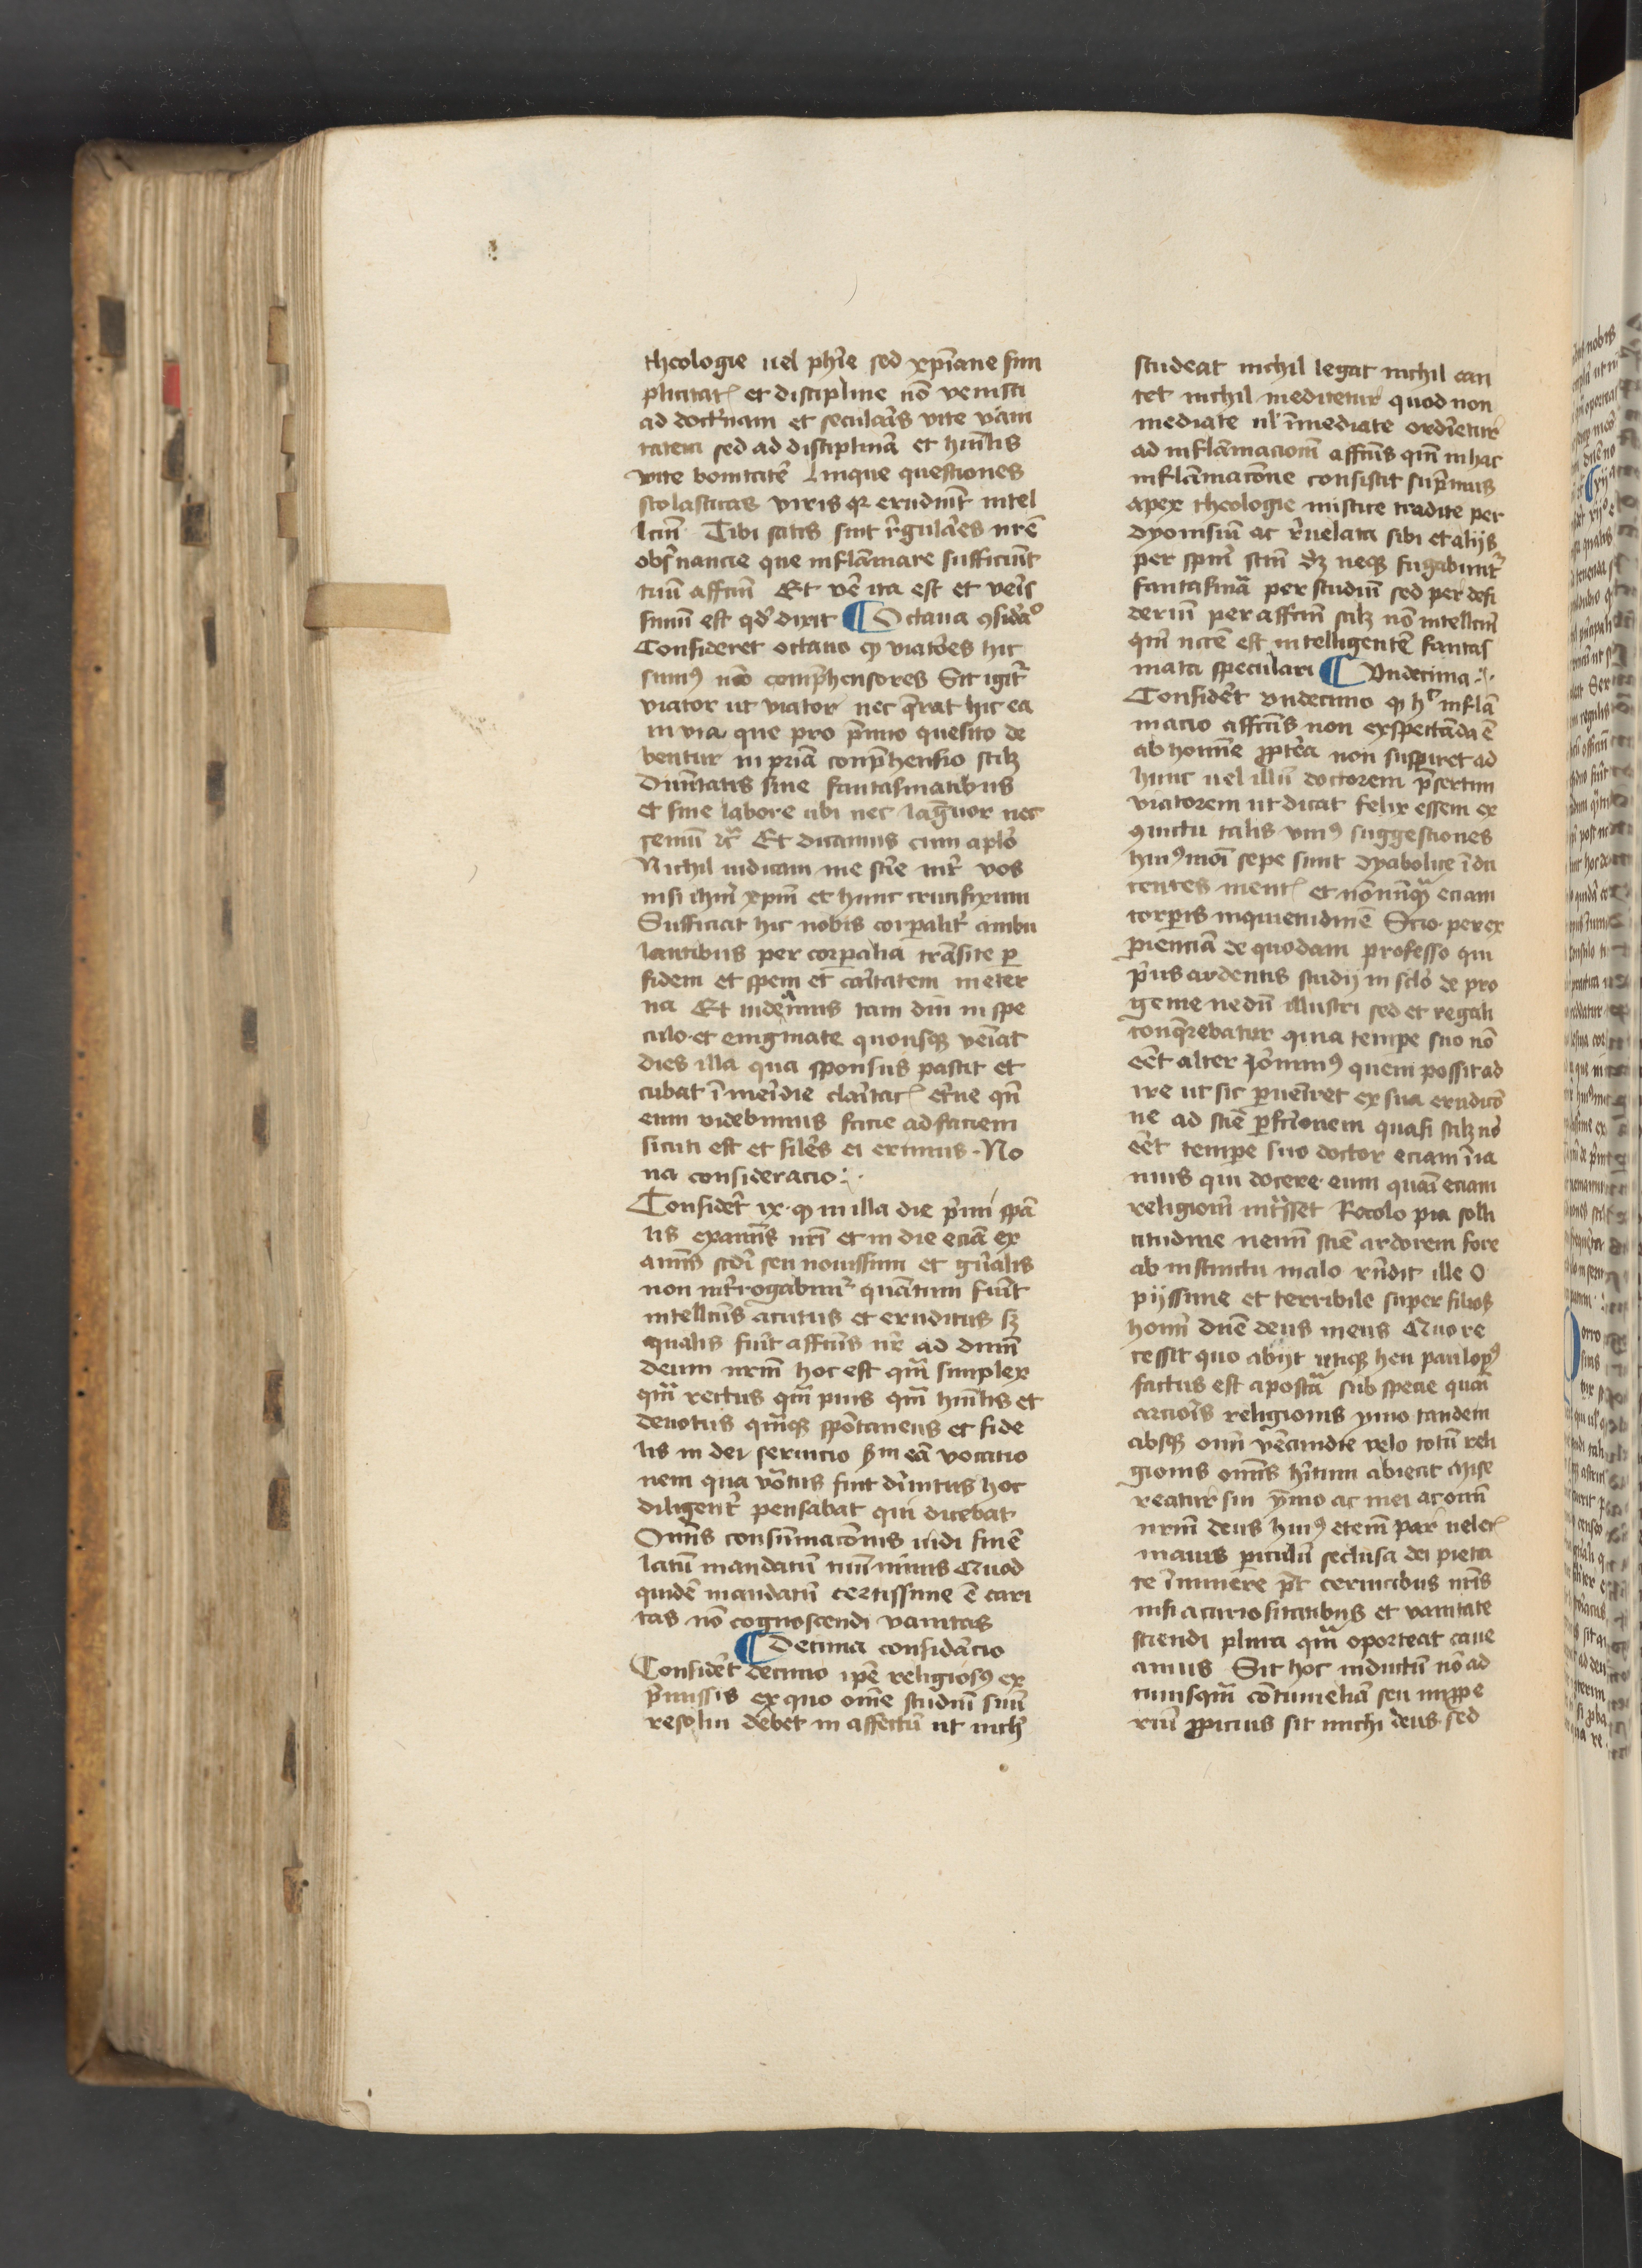 theologie uel ph̄ie sed xp̄iane sim
plicitat᷒ et discipline nō venisti
ad doct͛nam et secularͥs vite vani
tatem sed ad disciplinā et humͥlis
vite bonitatē Linque questiones
scolasticas viris qͥ erudiūt intel
lctm̄ Tibi satis sint r̄gulares nr̄e
obs͛uancie que inflāmare sufficiūt
tuū affctm̄ Et vē ita est et veris
simū est qd̓ dixit ¶ Octaua ꝯsid̓aͦ
Consideret octauo ꝙ viatores hic
sumꝰ nō comp̄hensores Sit igit͛
viator ut viator nec q̄rat hic ea
in via que pro p̄mio quesito de
bentur in pr̄iā comp̄hensio scilꝫ
Diuītatis sine fantasmatibus
et sine labore ubi nec lāguor nec
gemit᷒ ꝛc̄ Et dicamus cum aplo
Nichil iudicaui me sc̄ie int͛ vos
nisi ihm̄ xpm̄ et hunc crucifixum
Sufficiat hic nobis corꝑalit͛ ambu
lantibus per corꝑalia trāsite ꝑ
fidem et spem et cāritatem in eter
na Et uideamus tam diu in spe
culo et enigmate quousqꝫ veniat
dies illa qua sponsus pascit et
cubat ī meridie claritat᷒ et͛ne qn̄
eum videbimus facie ad faciem
sicuti est et siles ei erimus · No
na consideracio ·:·
Consider͛ ix · ꝙ in illa die p̄mi spā
lis examīs nr̄i et in die eciā ex
amīs scd̓i seu nouissimi et gn̄alis
non int͛rogabimͬ quātum fuit
intellcūs acutus et eruditus sꝫ
qualis fuit affctūs nr̄ ad dnm̄
deum nrm̄ hoc est qm̄ simplex
qm̄ rectus qm̄ pius qm̄ humͥlis et
deuotus qm̄qꝫ spōtaneus et fide
lis in dei seruicio ẜm eā vocatio
nem qua vocatus fuit diuītus hoc
diligent͛ pensabat qui dicebat
Omīs consummacōnis uidi finē
latū mandatū tuū nimis Quod
quidē mandatū certissime ē cari
tas nō cognoscendi vanitas
¶ Decima considacio
Consider͛ decimo ip̄e religiosꝰ ex
p̄missis ex quo om̄e studiū suū
resolui debet in affectū ut nich̓
studeat nichil legat nichil can
tet nichil meditetur quod non
mediate ul̓ īmediate ordīetur
ad inflāmacionē affctūs qm̄ in hac
inflāmacōne consistit sup̄mus
apex theologie mistice tradite per
Dyonisiū ac r̄uelata sibi et alijs
per spm̄ scm̄ dꝫ neqꝫ fugabunt͛
fantasmā per studiū sed per desi
deriū per affctm̄ scilꝫ nō intellctm̄
qm̄ nccē est intelligentē fantas
mata speculari ¶ Undecima ·:·
Consider͛ undecimo ꝙ hͨ inflā
macio affctūs non exspectāda ē
ab homine ꝓpt͛ea non suspiret ad
hunc uel illū doctorem p̄sertim
viatorem ut dicat felix essem ex
ꝯuictu talis viuꝰ suggestiones
huiꝰmōi sepe sunt dyabolice īdu
centes ment᷒ et nōnūqꝫ eciam
corꝑis inquietudinē Scio per ex
pienciā de quodam professo qui
p̄us ardentis studij in sclo de pro
genie nedū illustri sed et regali
conq̄rebatur quia tempe suo nō
eēt alter Jeronimꝰ quem possit ad
ire ut sic ꝑueniret ex sua erudicō
ne ad scīe ꝑfctionem quasi scilꝫ nō
eēt tempe suo doctor eciam īfa
mus qui docere eum quāi eciam
religionē int͛sset Recolo pia solli
citudine nemī scīe ardorem fore
ab instinctu malo rn̄dit ille O
pijssime et terribile super filios
hom̄i dn̄e deus meus Quo re
cessit quo abijt utiqꝫ heu paulopͦ
factus est apostā sub specie quāi
arcioris religionis ymo tandem
absqꝫ om̄i vēcundie velo totū reli
gionis om̄is h̓itum abiecit Mise
reatur sui ymo ac mei ac om̄i
nrm̄ deus huiꝰ etem̄ par uel et᷒
mauis ꝑiculū seclusa dei pieta
te īminere pt̄ ceruicibus nr̄is
nisi a curiositatibus et vanitate
sciendi plura qm̄ oporteat caue
amus Sit hoc inductū nō ad
cuiusqm̄ cōtumeliā seu imꝓpe
riū ꝓpicius sit michi deus sed